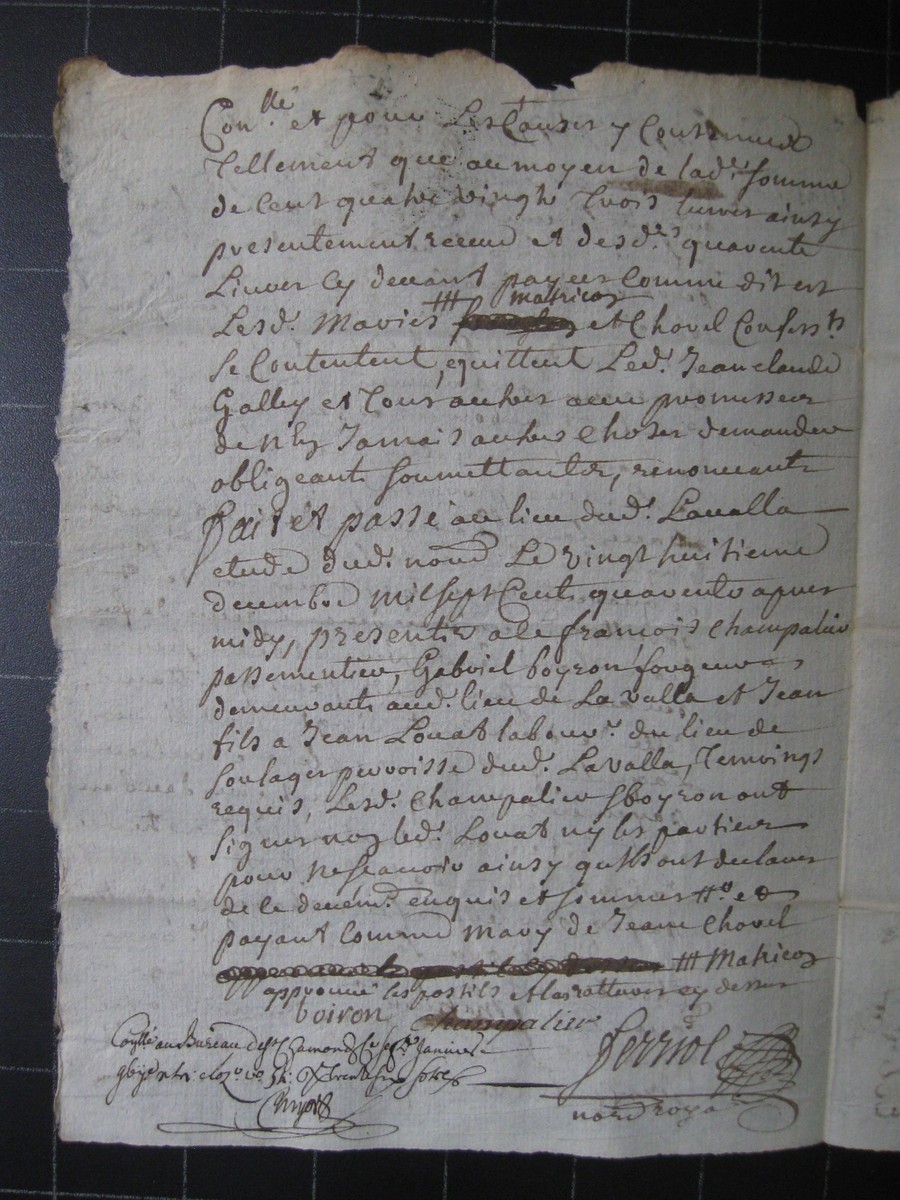 Con.lle et pour Les Causes y Contenues
Tellement que au moyen de lad.e somme
de Cent quatre vingts Trois livres ainsy
presentement receue et desd.es quarente
Livres Cy devant payees Comme dit est
Lesd. Maries ttt Matricos et Chovel Confess.ts
Se Contentent, equittent Led. Jean claude
Galley et Tous autres avec promesses
de n'en Jamais autres Choses demander
obligeants soumettants, renonceants
fait et passé au lieu dud. Lavalla
etude dud. no.re Le vingt huitieme
decembre mil sept Cents quarente apres
midy, presents a ce françois Champalier
passementier, Gabriel boyron forgeur
demeurants aud. lieu de La Valla et Jean
fils a Jean Louat labour.r du lieu de
Soulages perroisse dud. Lavalla, Temoings
requis, Lesd. Champalier & boyron ont
signes non led. Louat ny les parties
pour ne scavoir ainsy quils ont declares
de ce deuem.t enquis et sommes tt.o et
payant Comme mary de Jeane Chovel
ttt Matricos
approuvé les postils et les ratteures cy dessus
boiron Champalier
Conllé au Bureau de St Chamond Ce sept.e Janvier
Ferriol
no.re royal